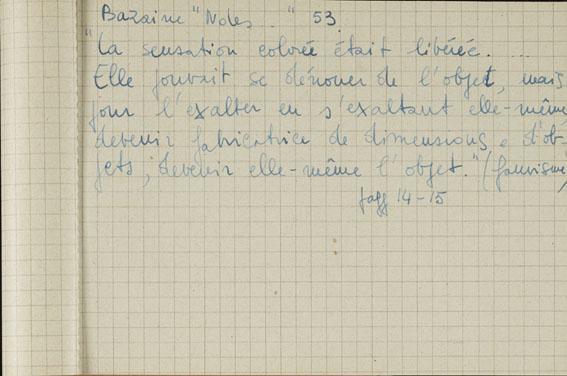 Bazaine "Notes . " 53
"La sensation colorée était libérée. ...
Elle pouvait se dénouer de l'objet, mais
pour l'exalter en s'exaltant elle-même,
devenir fabricatrice de dimensions, d'ob-
jets, devenir elle-même l'objet." (fauvisme)
pagg 14-15